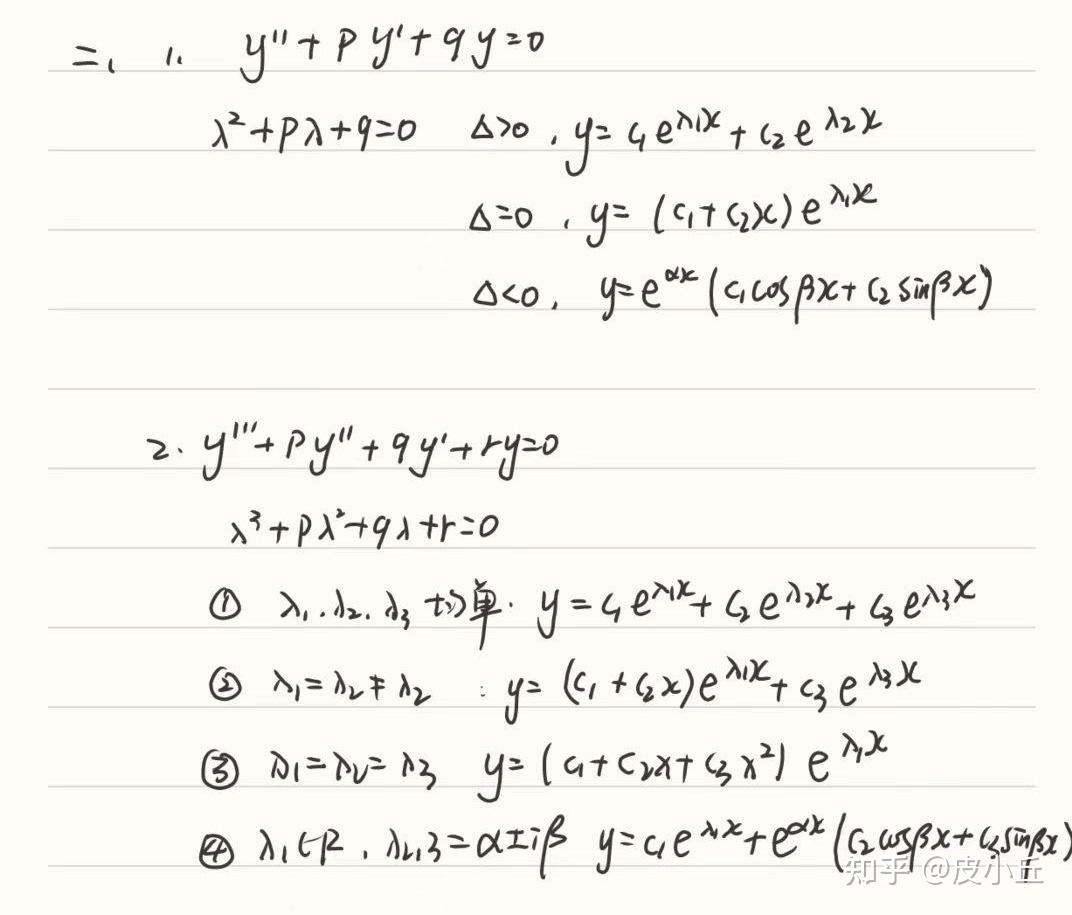 二、 1. y''+py'+qy=0
λ²+pλ+q=0 Δ>0, y=c₁e^{λ₁x}+c₂e^{λ₂x}
Δ=0, y=(c₁+c₂x)e^{λ₁x}
Δ<0, y=e^{αx}(c₁cosβx+c₂sinβx)
2. y'''+py''+qy'+ry=0
λ³+pλ²+qλ+r=0
① λ₁.λ₂.λ₃均单. y=c₁e^{λ₁x}+c₂e^{λ₂x}+c₃e^{λ₃x}
② λ₁=λ₂≠λ₂ : y=(c₁+c₂x)e^{λ₁x}+c₃e^{λ₃x}
③ λ₁=λ₂=λ₃ y=(c₁+c₂x+c₃x²)e^{λ₁x}
④ λ₁∈R, λ₂,₃=α±iβ y=c₁e^{λ₁x}+e^{αx}(c₂cosβx+c₃sinβx)
知乎 @皮小丘